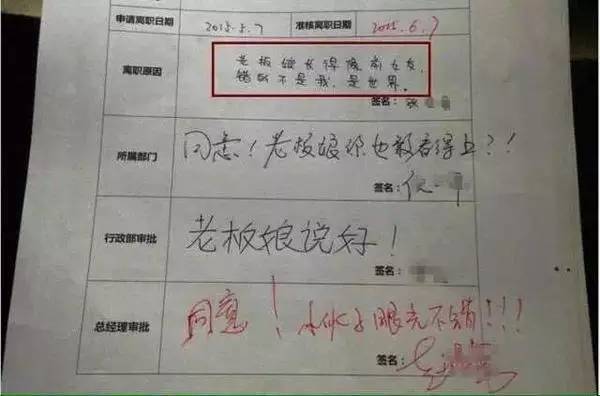 申请离职日期 2015.5.7 准核离职日期 2015.6.7
离职原因
老板娘长得像前女友,
错的不是我,是世界。
签名: 张
所属部门
同意!老板娘你也敢看得上?!
签名:
行政部审批
老板娘说好!
签名:
总经理审批
同意!小伙子眼光不错!!!
签名: